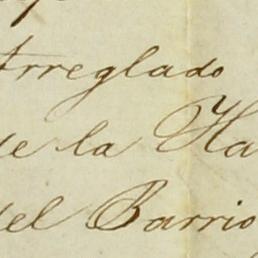 Arreglado
de la Ha
del Barrio